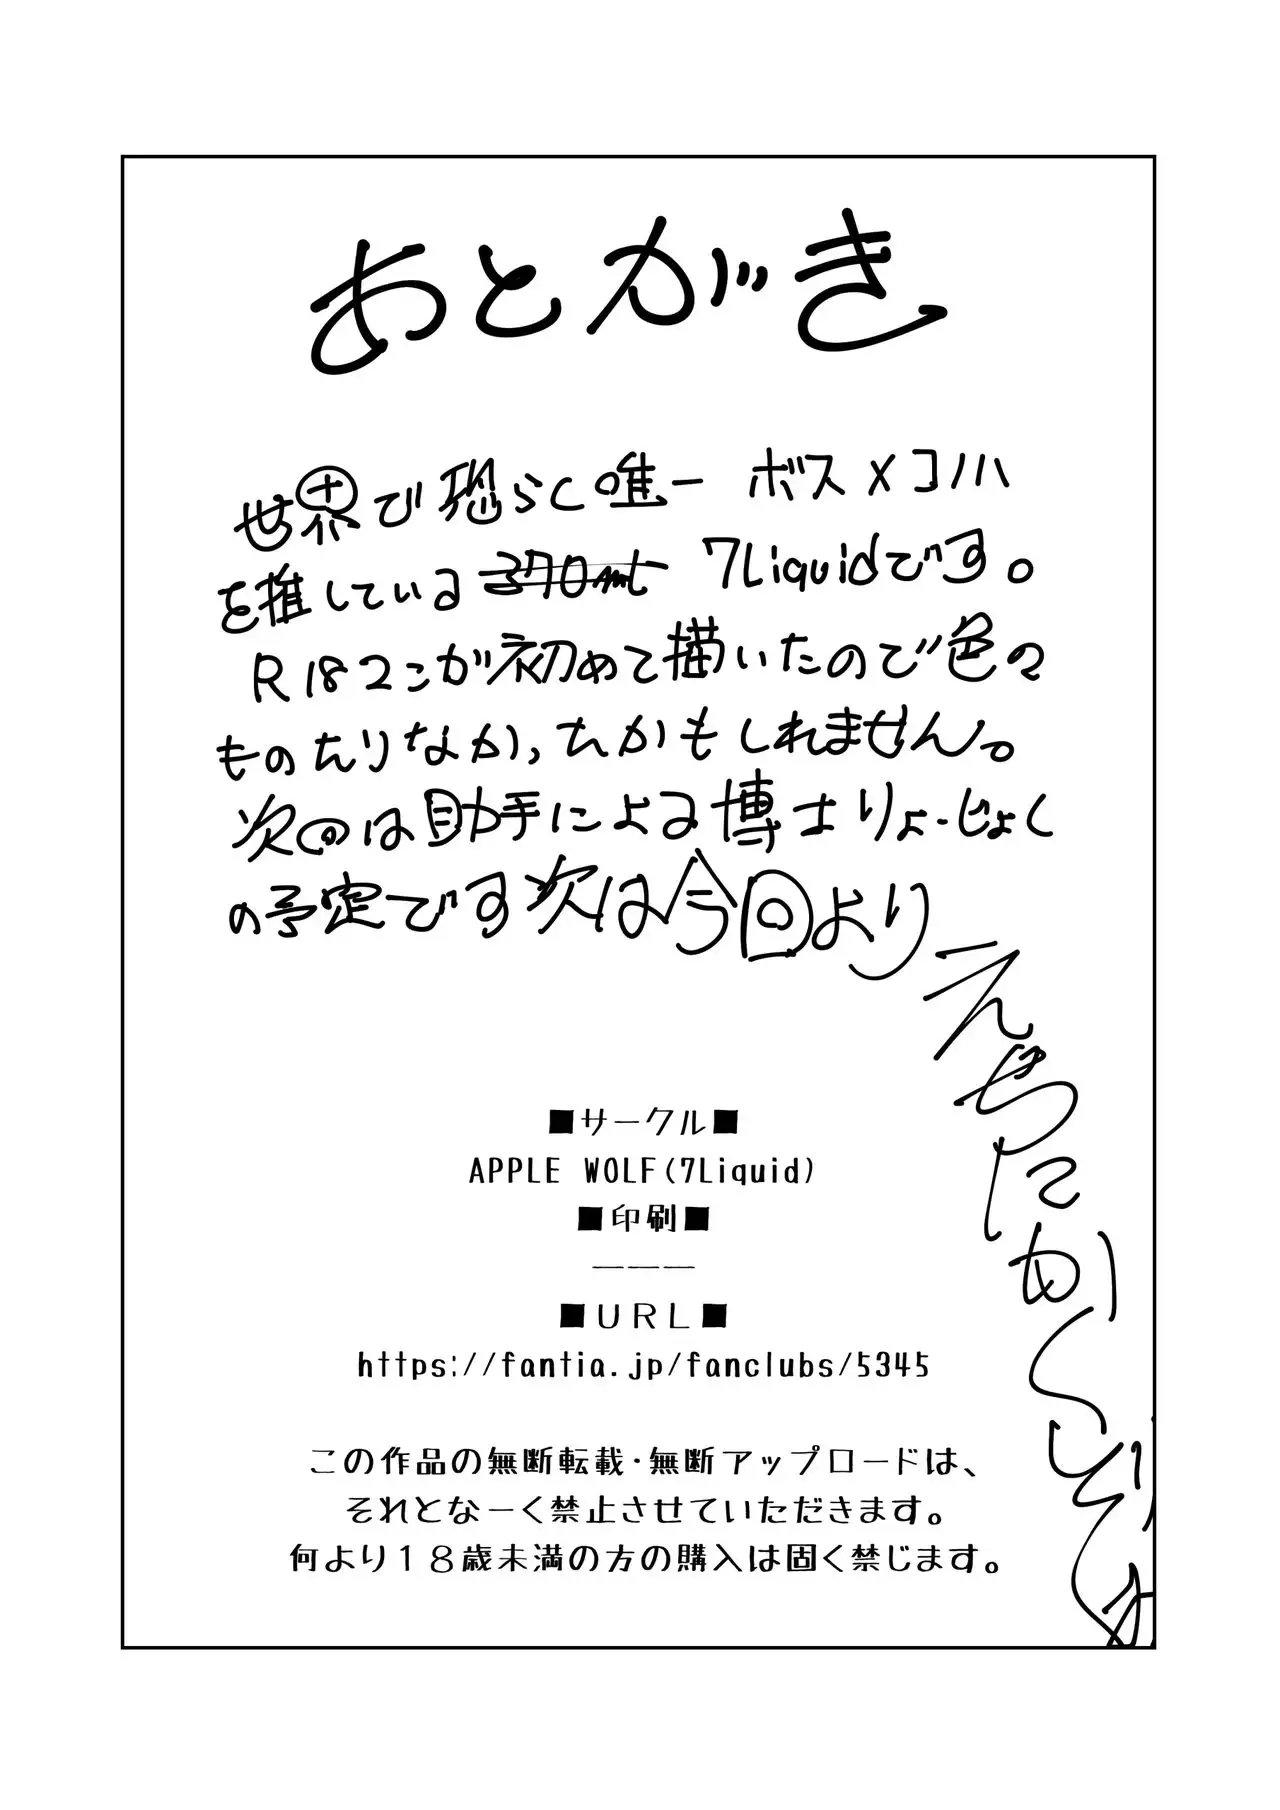 あとがき
世界で恐らく唯一 ボス×コノハ
を推している 370ml 7Liquidです。
R18マンガ初めて描いたので色々
ものたりなかったかもしれません。
次のは助手による博士りょーじょく
の予定です次は今回より
えちちたかく
■サークル■
APPLE WOLF(7Liquid)
■印刷■
———
■URL■
https://fantia.jp/fanclubs/5345
この作品の無断転載・無断アップロードは、
それとなーく禁止させていただきます。
何より18歳未満の方の購入は固く禁じます。